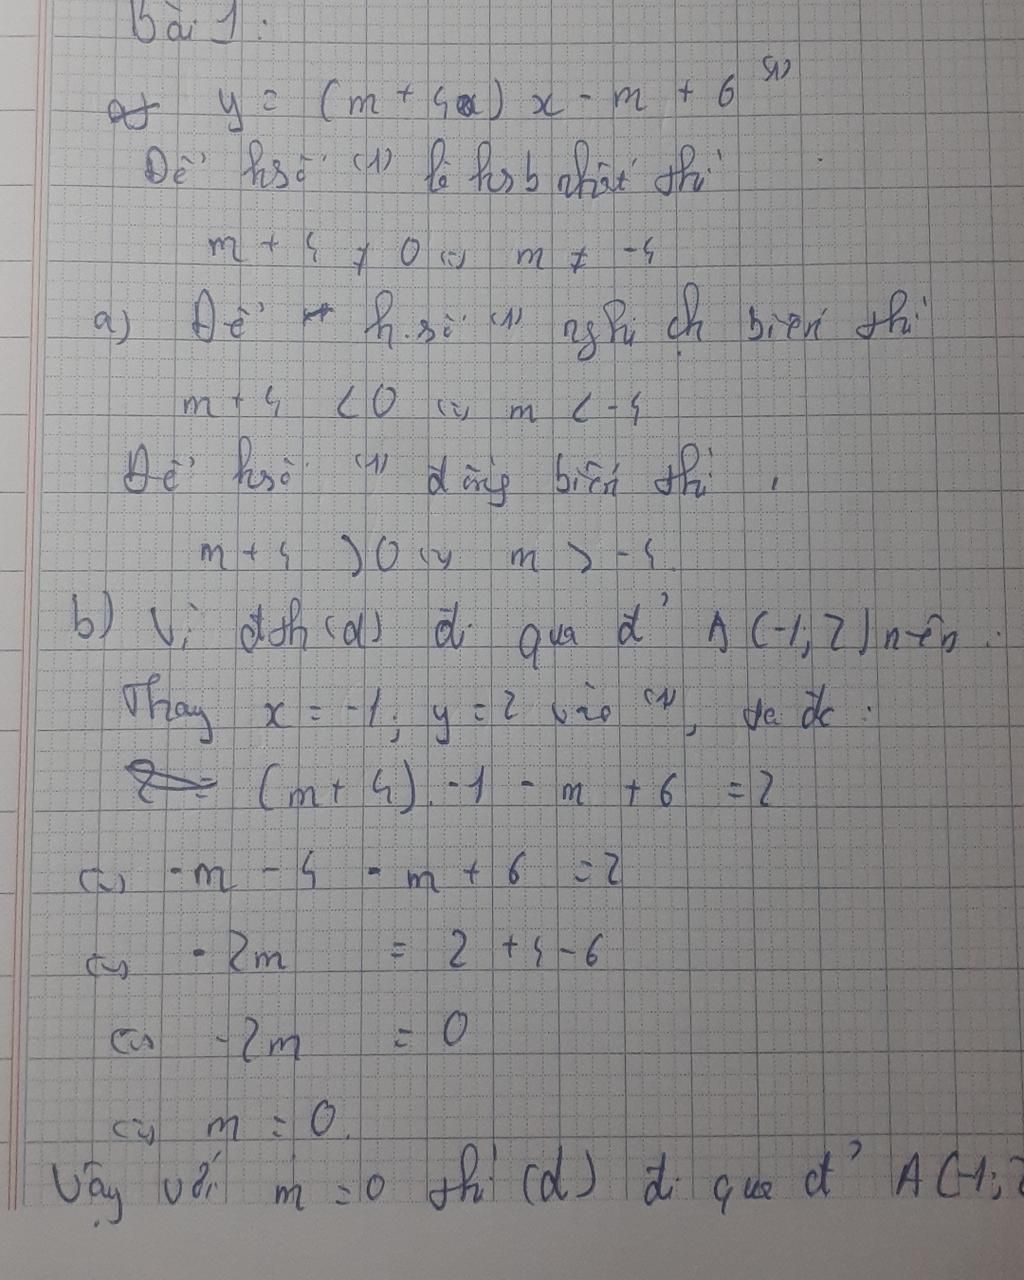 Bài 1:
y = (m + 4) x - m + 6 (1)
Để hsố (1) là hsb nhất thì
m + 4 ≠ 0 <=> m ≠ -4
a) Để h.số (1) nghịch biến thì
m + 4 < 0 <=> m < -4
Để hsố (1) đồng biến thì
m + 4 > 0 <=> m > -4
b) Vì đth (d) đi qua đ' A (-1; 2) nên:
Thay x = -1; y = 2 vào (1), ta đc:
(m + 4) . -1 - m + 6 = 2
<=> -m - 4 - m + 6 = 2
<=> -2m = 2 + 4 - 6
<=> -2m = 0
<=> m = 0.
Vậy với m = 0 thì (d) đi qua đ' A (-1; 2